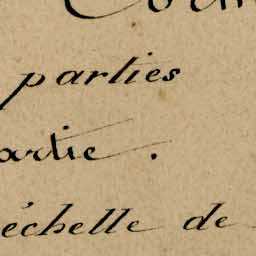 parties
artie.
échelle de